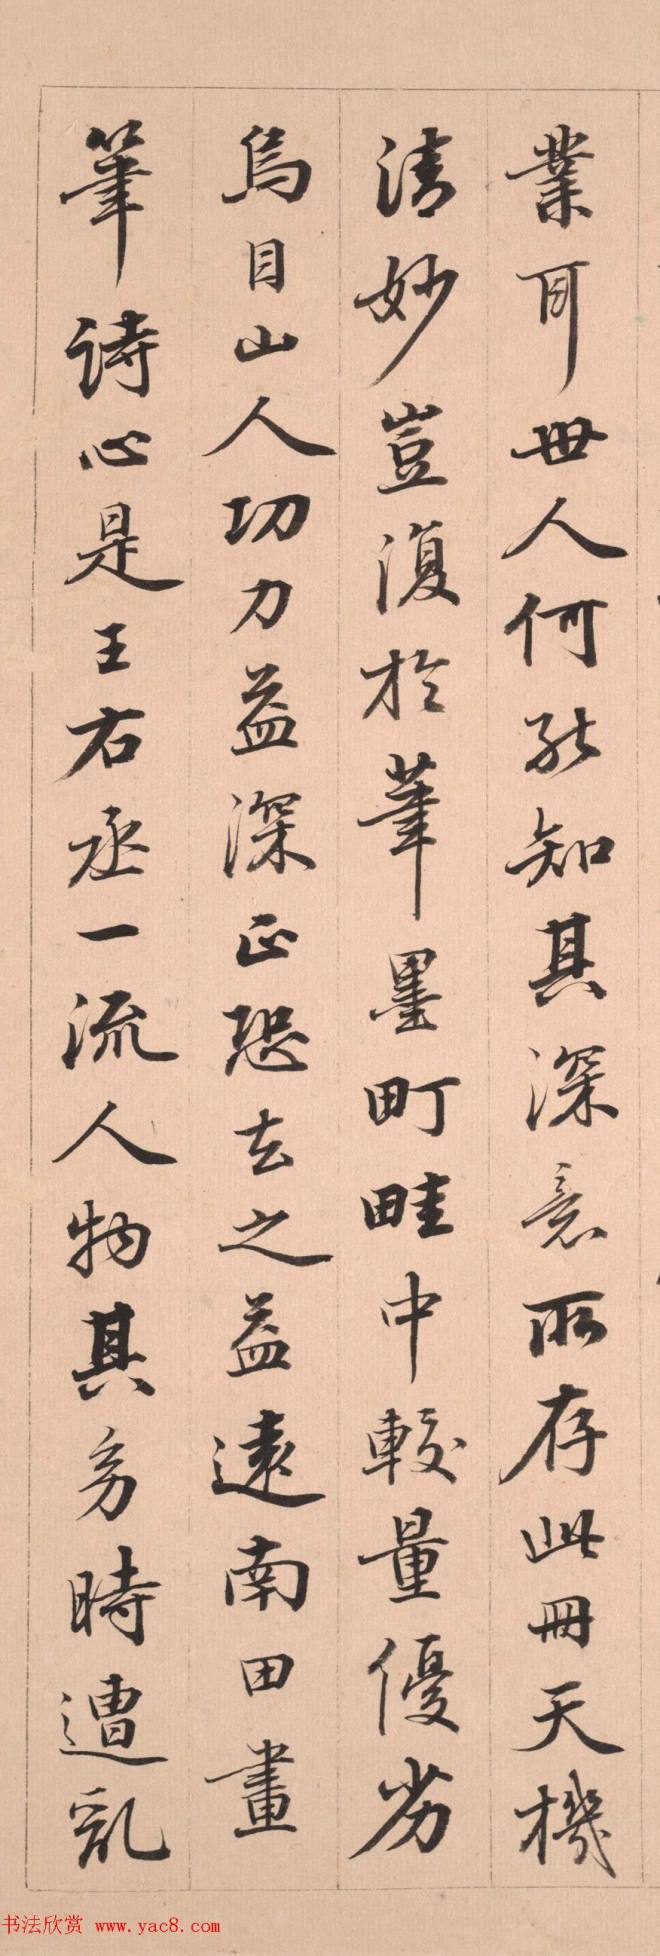 業耳世人何能知其深意所存此冊天機
清妙豈復於筆墨町畦中較量優劣
烏目山人功力益深正恐去之益遠南田畫
筆詩心是王右丞一流人物其多時遭亂
书法欣赏 www.yac8.com